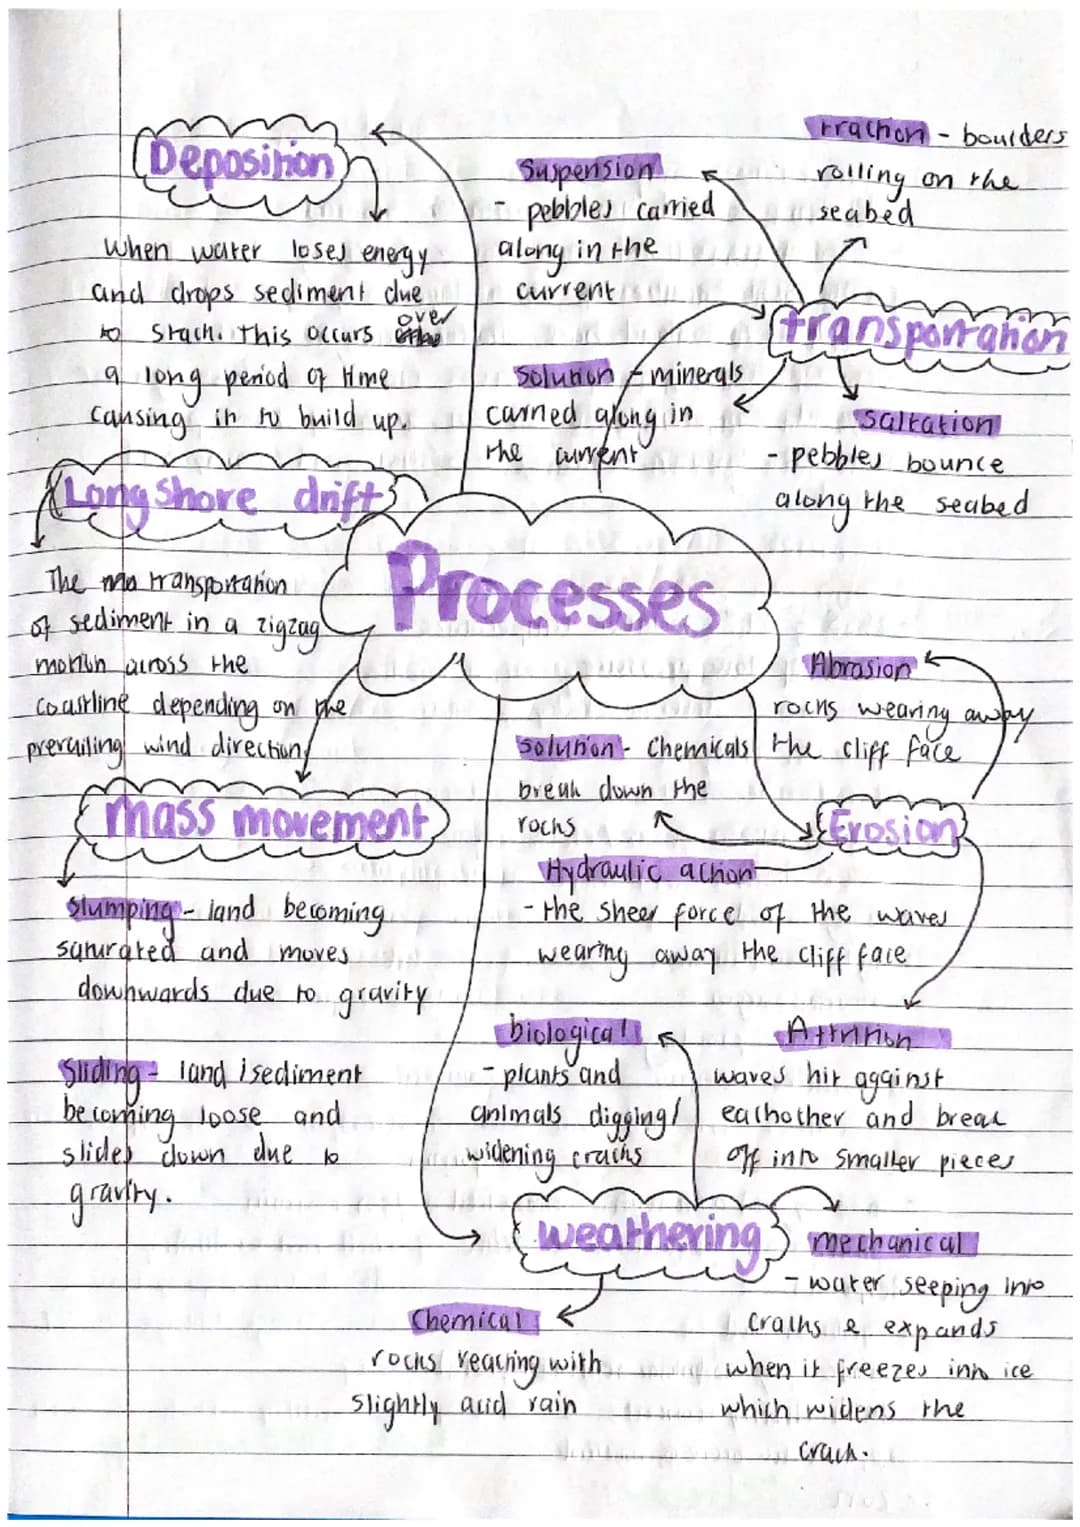 Deposition
When water loses energy
and drops sediment due
to stack. This occurs over
a long period of time
causing in to build up.
Suspension
- pebbles carried
along in the
current
traction - boulders
rolling on the
seabed
transportation
Solution - minerals
carried along in
the current
Saltation
- pebbles bounce
along the seabed
Longshore drift
The transportation
of sediment in a zigzag
motion across the
coastline depending on the
prevailing wind direction
Processes
Abrasion
rocks wearing away
the cliff face
Solution - Chemicals
break down the
rocks
Erosion
Hydraulic action
- the sheer force of the waves
wearing away the cliff face
Attrition
waves hit against
eachother and break
off into smaller pieces
mass movement
Slumping - land becoming
saturated and moves
downwards due to gravity
Sliding - land / sediment
becoming loose and
slides down due to
gravity.
biological
- plants and
animals digging /
widening cracks
weathering
mechanical
- water seeping into
cracks & expands
when it freezes into ice
which widens the
crack.
Chemical
rocks reacting with
slightly acid rain